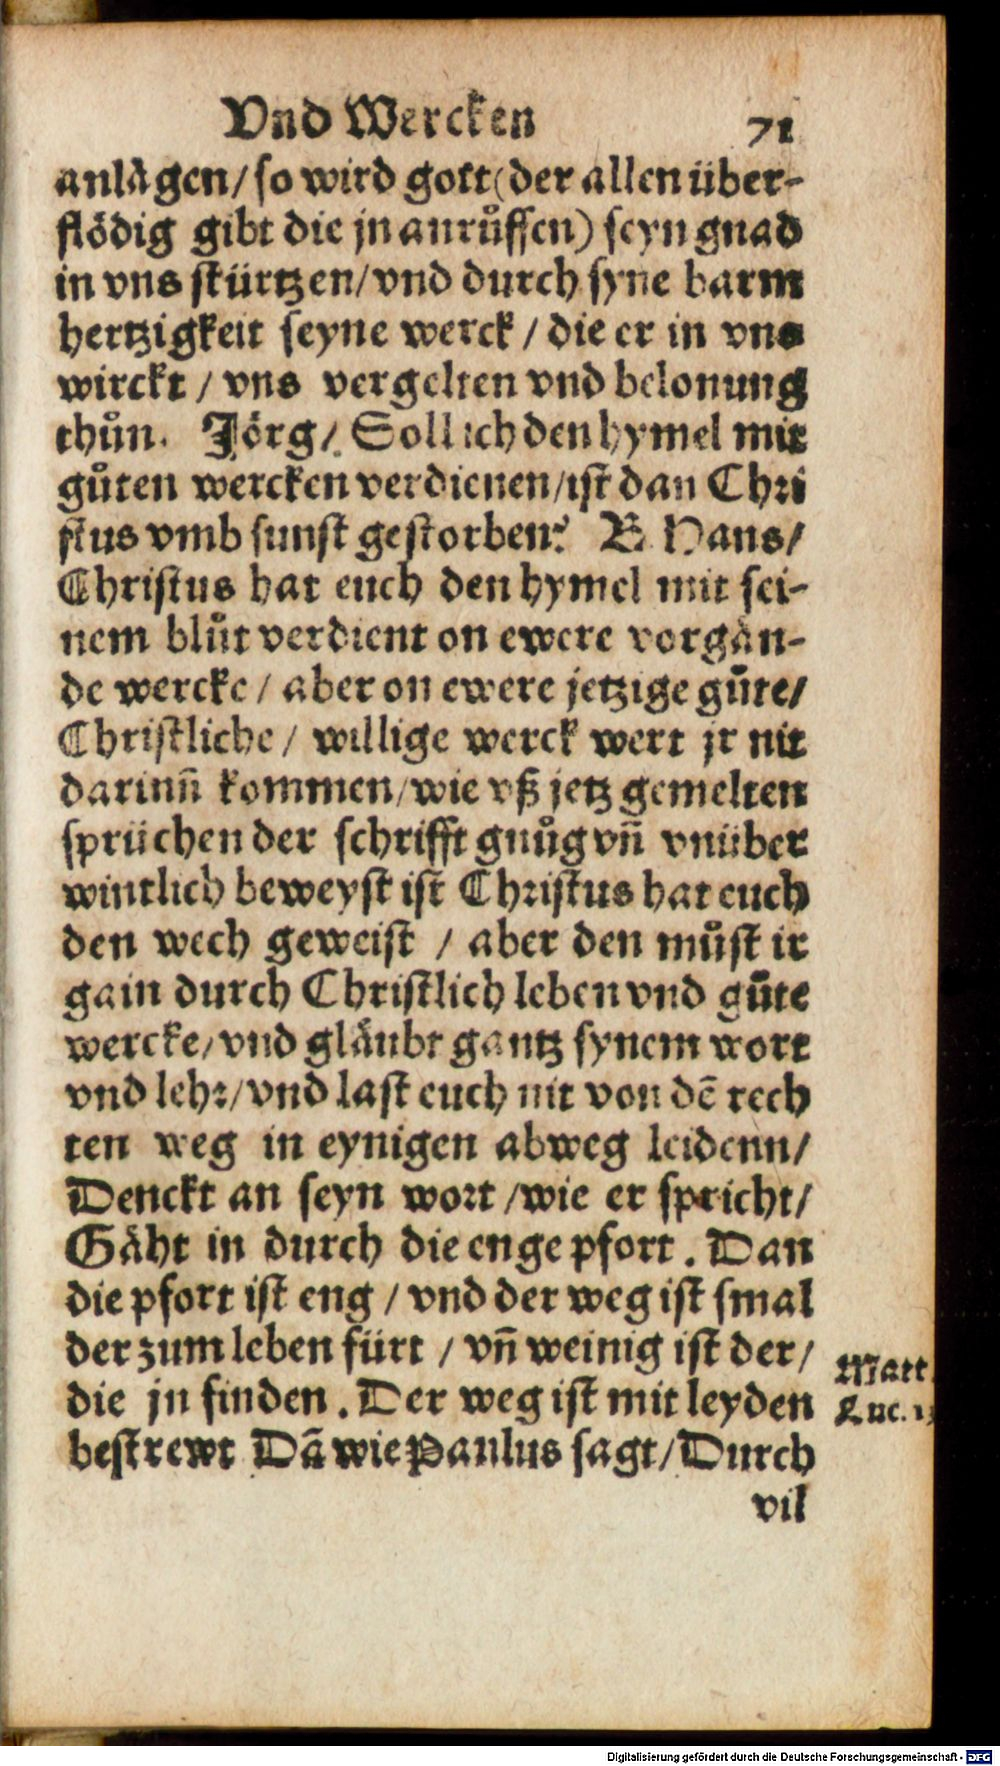 Vnd Wercken 71
anlågen/ so wird gott (der allen über-
flödig gibt die jn anrůffen) seyn gnad
in vns stürtzen/ vnd durch syne barm
hertzigkeit seyne werck / die er in vns
wirckt / vns vergelten vnd belonung
thůn. Jörg/ Soll ich den hymel mit
gůten wercken verdienen/ ist dan Chri
stus vmb sunst gestorben? B. Hans/
Christus hat euch den hymel mit sei-
nem blůt verdient on ewere vorgån-
de wercke / aber on ewere jetzige gůte/
Christliche / willige werck wert jr nit
darinn̄ kommen/ wie vß jetz gemelten
sprüchen der schrifft gnůg vn̄ vnüber
wintlich beweyst ist Christus hat euch
den wech geweist / aber den můst ir
gain durch Christlich leben vnd gůte
wercke/ vnd glåubt gantz synem wort
vnd lehr/ vnd last euch nit von dē rech
ten weg in eynigen abweg leidenn/
Denckt an seyn wort / wie er spricht/
Gåht in durch die enge pfort . Dan
die pfort ist eng / vnd der weg ist smal
der zum leben fürt / vn̄ weinig ist der/
die jn finden . Der weg ist mit leyden
bestrewt Dā wie Paulus sagt/ Durch
vil
Matt.
Luc.
Digitalisierung gefördert durch die Deutsche Forschungsgemeinschaft - DFG